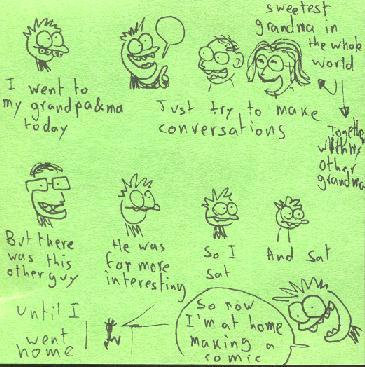 sweetest
grandma in
the whole
world
I went to
my grandpa&ma
today
Just try to make
conversations
Together
with my
other
grandma
But there
was this
other guy
He was
far more
interesting
So I
sat
And sat
until I
went
home
So now
I'm at home
making a
comic